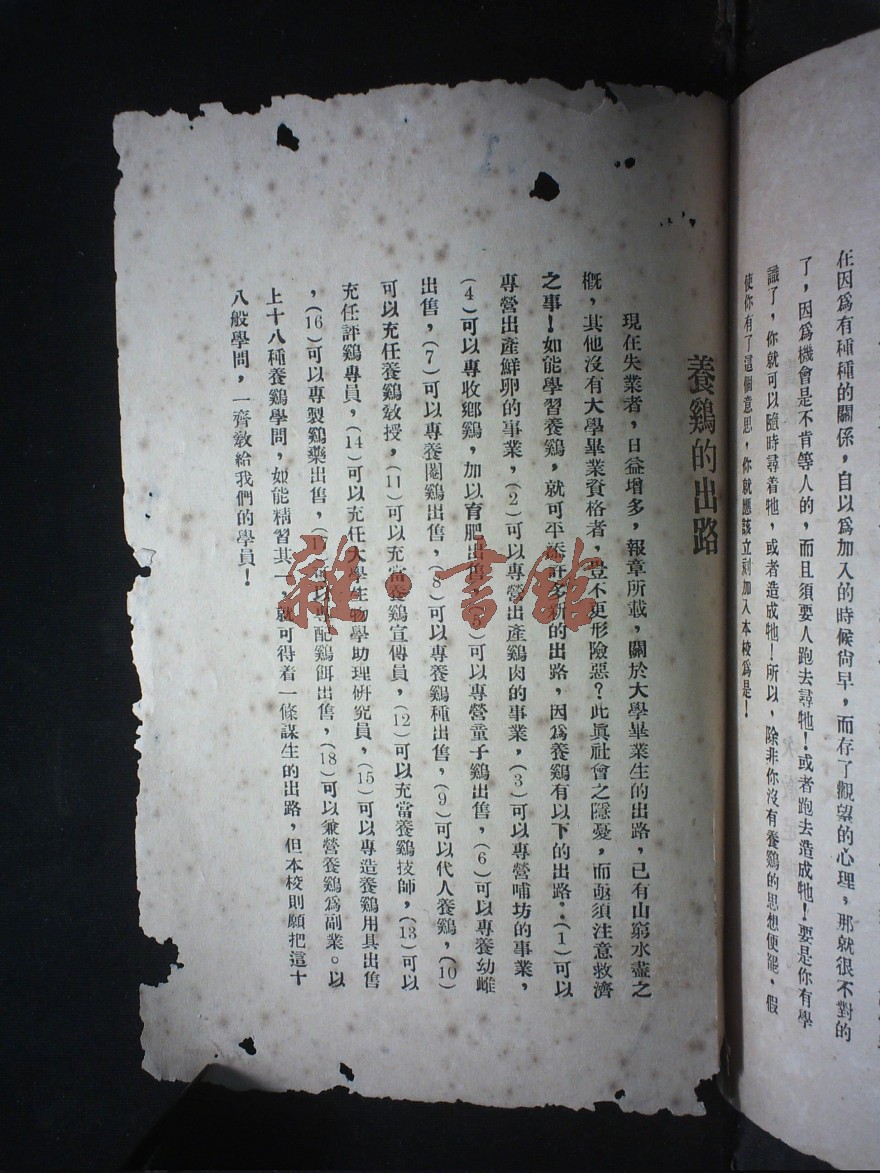 任因爲有種種的關係，自以爲加入的時候尙早，而存了觀望的心理，那就很不對的
了，因爲機會是不肯等人的，而且須要人跑去尋牠！或者跑去造成牠！要是你有學
識了，你就可以隨時尋着牠，或者造成牠！所以，除非你沒有養鷄的思想便罷，假
使你有了這個意思，你就應該立刻加入本校爲是！
養鷄的出路
現在失業者，日益增多，報章所載，關於大學畢業生的出路，已有山窮水盡之
槪，其他沒有大學畢業資格者，豈不更形險惡？此眞社會之隱憂，而亟須注意救濟
之事！如能學習養鷄，就可平添許多新的出路，因爲養鷄有以下的出路：(1)可以
專營出產鮮卵的事業，(2)可以專營出產鷄肉的事業，(3)可以專營哺坊的事業，
(4)可以專收鄉鷄，加以育肥出售，(5)可以專營童子鷄出售，(6)可以專養幼雌
出售，(7)可以專養閹鷄出售，(8)可以專養鷄種出售，(9)可以代人養鷄，(10)
可以充任養鷄敎授，(11)可以充當養鷄宣傳員，(12)可以充當養鷄技師，(13)可以
充任評鷄專員，(14)可以充任大學生物學助理研究員，(15)可以專造養鷄用具出售
，(16)可以專製鷄藥出售，(17)可以專配鷄餌出售，(18)可以兼營養鷄爲副業。以
上十八種養鷄學問，如能精習其一，就可得着一條謀生的出路，但本校則願把這十
八般學問，一齊敎給我們的學員！
雜·書館